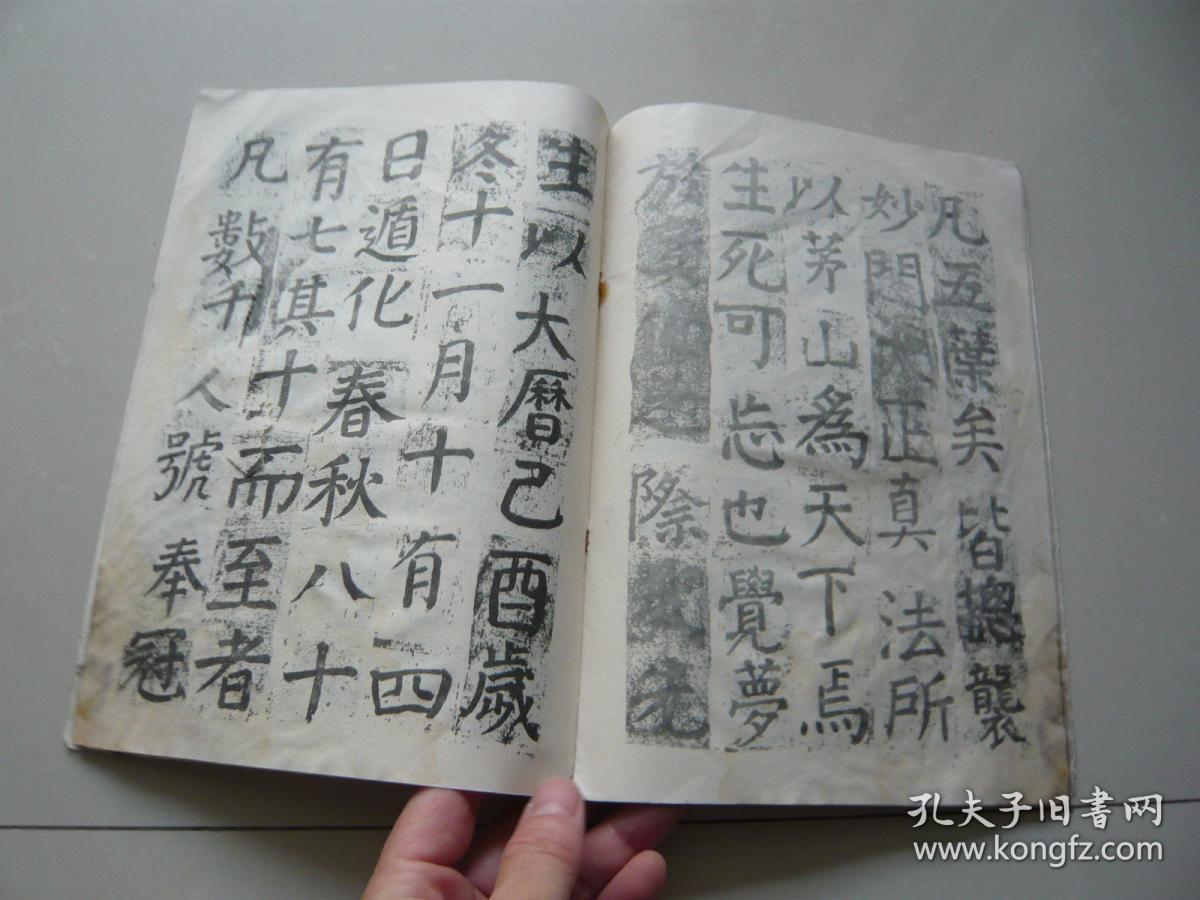 凡五葉矣皆摠襲
妙門大正真法所
以茅山為天下焉
生死可忘也覺夢
於之際先
生以大曆己酉歲
冬十一月十有四
日遁化春秋八十
有七其十而至者
凡數升人號奉冠
孔夫子旧書网
www.kongfz.com